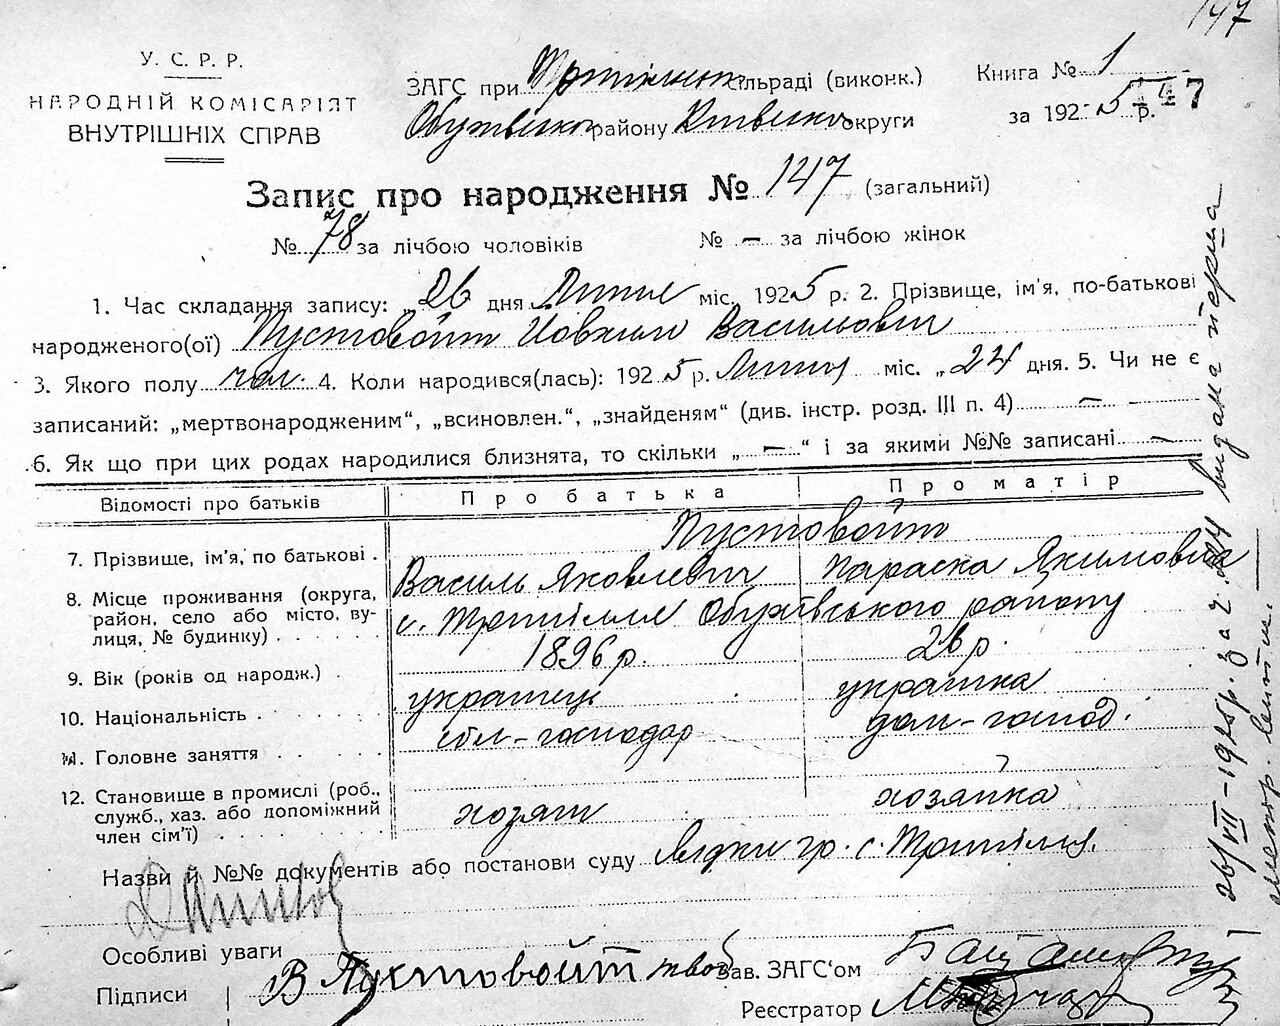 147
У. С. Р. Р.
НАРОДНІЙ КОМІСАРІЯТ
ВНУТРІШНІХ СПРАВ
ЗАГС при Трипільск сільраді (виконк.)
Обухівско району Київско округи
Книга № 1
за 1925 р.
147
Запис про народження № 147 (загальний)
№ 78 за лічбою чоловіків № – за лічбою жінок
1. Час складання запису: „26 дня Липня міс. 1925 р. 2. Прізвище, ім'я, по-батькові
народженого(ої) Пустовойт Йовхим Васильович
3. Якого полу чол. 4. Коли народився(лась): 1925 р. Липня міс. „24 дня. 5. Чи не є
записаний: „мертвонародженим“, „всиновлен.“, „знайденям“ (див. інстр. розд. III п. 4) –
6. Як що при цих родах народилися близнята, то скільки „ – “ і за якими №№ записані –
Відомості про батьків Про батька Про матір
Пустовойт
7. Прізвище, ім'я, по батькові . Василь Яковлевич Параска Якимовна
8. Місце проживання (округа, район, село або місто, вулиця, № будинку) с. Трипілля Обухівського району
9. Вік (років од народж.) . 1896 р. 26 р.
10. Національність . українець українка
11. Головне заняття сіл-господар дом-господ.
12. Становище в промислі (роб., служб., хаз. або допоміжний член сім'ї) хозяин хозяйка
Назви й №№ документів або постанови суду гр. с. Трипілля.
Особливі уваги
Підписи В Пустовойт
Зав. ЗАГС‘ом
Реєстратор
26/VII-1925р. за ч. видана перша